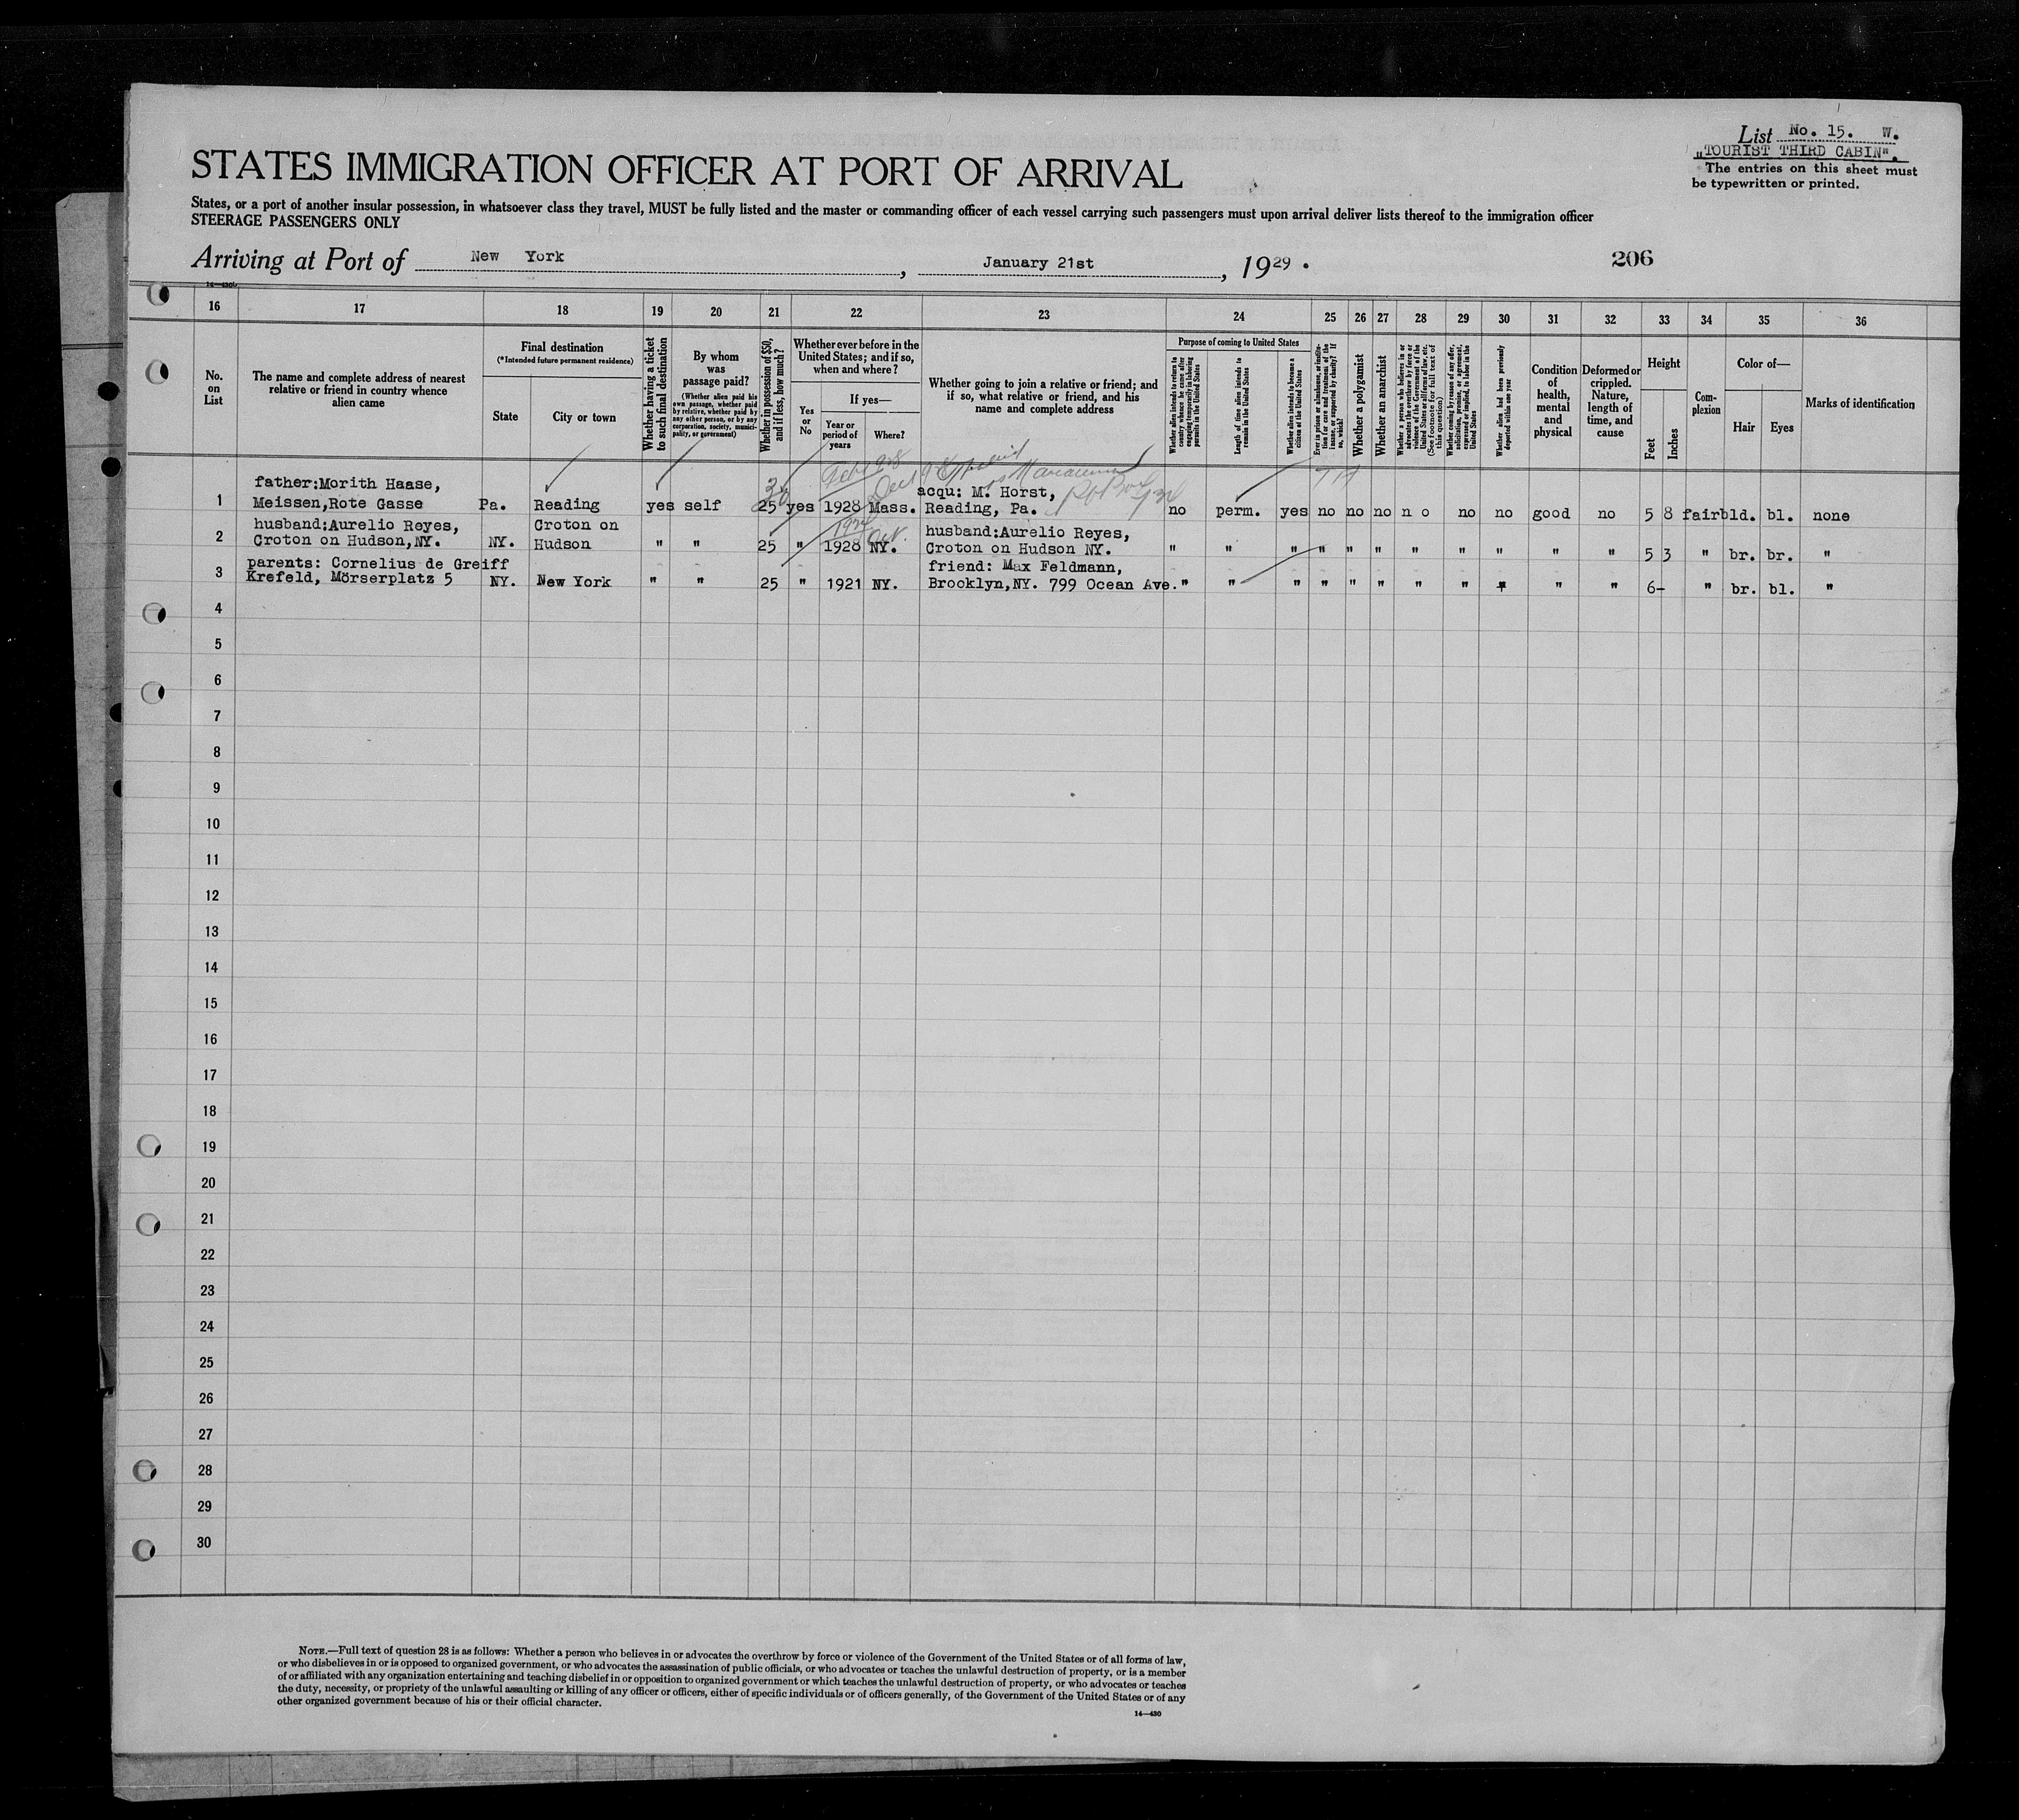 List No. 15. W.
„TOURIST THIRD CABIN".
The entries on this sheet must
be typewritten or printed.
STATES IMMIGRATION OFFICER AT PORT OF ARRIVAL
States, or a port of another insular possession, in whatsoever class they travel, MUST be fully listed and the master or commanding officer of each vessel carrying such passengers must upon arrival deliver lists thereof to the immigration officer
STEERAGE PASSENGERS ONLY
Arriving at Port of New York, January 21st, 1929.
206
14—430
16 17 18 19 20 21 22 23 24 25 26 27 28 29 30 31 32 33 34 35 36
No.
on
List
The name and complete address of nearest
relative or friend in country whence
alien came
Final destination
(*Intended future permanent residence)
State
City or town
Whether having a ticket
to such final destination
By whom
was
passage paid?
(Whether alien paid his
own passage, whether paid
by relative, whether paid by
any other person, or by any
corporation, society, munici-
pality, or government)
Whether in possession of $50,
and if less, how much?
Whether ever before in the
United States; and if so,
when and where?
Yes
or
No
If yes—
Year or
period of
years
Where?
Whether going to join a relative or friend; and
if so, what relative or friend, and his
name and complete address
Purpose of coming to United States
Whether alien intends to return to
country whence he came after
engaging temporarily in laboring
pursuits in the United States
Length of time alien intends to
remain in the United States
Whether alien intends to become a
citizen of the United States
Ever in prison or almshouse, or institu-
tion for care and treatment of the
insane, or supported by charity? If
so, which?
Whether a polygamist
Whether an anarchist
Whether a person who believes in or
advocates the overthrow by force or
violence of the Government of the
United States or all forms of law, etc.
(See footnote for full text of
this question)
Whether coming by reason of any offer,
solicitation, promise, or agreement,
expressed or implied, to labor in the
United States
Whether alien had been previously
deported within one year
Condition
of
health,
mental
and
physical
Deformed or
crippled.
Nature,
length of
time, and
cause
Height
Feet
Inches
Com-
plexion
Color of—
Hair
Eyes
Marks of identification
father:Morith Haase, acqu: M. Horst,
1 Meissen,Rote Gasse Pa. Reading yes self 25 yes 1928 Mass. Reading, Pa. no perm. yes no no no n o no no good no 5 8 fair bld. bl. none
husband:Aurelio Reyes, Croton on husband:Aurelio Reyes,
2 Croton on Hudson,NY. NY. Hudson " " 25 " 1928 NY. Croton on Hudson NY. " " " " " " " " " " " 5 3 " br. br. "
parents: Cornelius de Greiff friend: Max Feldmann,
3 Krefeld, Mörserplatz 5 NY. New York " " 25 " 1921 NY. Brooklyn,NY. 799 Ocean Ave. " " " " " " " " " " " 6- " br. bl. "
4
5
6
7
8
9
10
11
12
13
14
15
16
17
18
19
20
21
22
23
24
25
26
27
28
29
30
NOTE.—Full text of question 28 is as follows: Whether a person who believes in or advocates the overthrow by force or violence of the Government of the United States or of all forms of law,
or who disbelieves in or is opposed to organized government, or who advocates the assassination of public officials, or who advocates or teaches the unlawful destruction of property, or is a member
of or affiliated with any organization entertaining and teaching disbelief in or opposition to organized government or which teaches the unlawful destruction of property, or who advocates or teaches
the duty, necessity, or propriety of the unlawful assaulting or killing of any officer or officers, either of specific individuals or of officers generally, of the Government of the United States or of any
other organized government because of his or their official character.
14—430